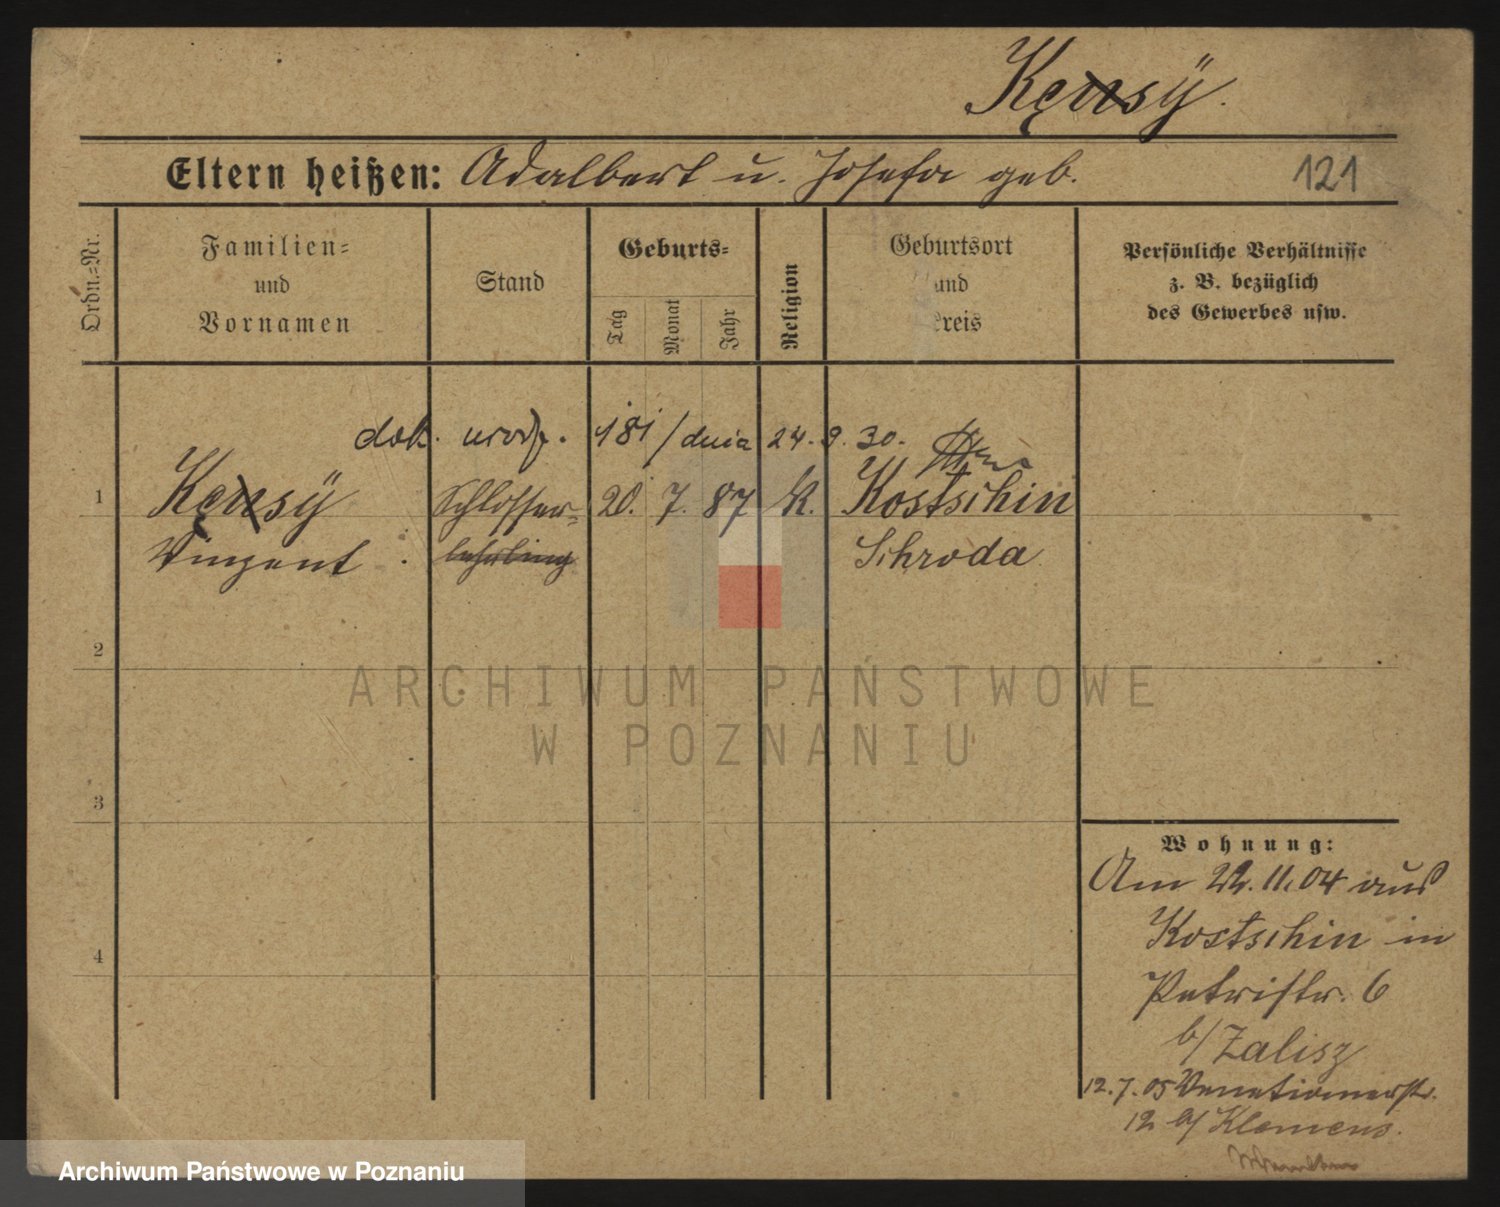 Kensÿ.
Eltern heißen: Adalbert u. Josefa geb.
121
Ordn.=Nr.
Familien=
und
Vornamen
Stand
Geburts=
Tag
Monat
Jahr
Religion
Geburtsort
und
Kreis
Persönliche Verhältnisse
z. B. bezüglich
des Gewerbes usw.
dok. urodz. 181/dnia 24.9.30.
1 Kensÿ Schlosser= 20. 7. 87 K. Kostschin
Vinzent. lehrling Schroda
2
3
4
Wohnung:
Am 22.11.04 aus
Kostschin in
Petristr. 6
b/Zalisz
12.7.05 Venetianerstr.
12 b/ Klemens.
ARCHIWUM PAŃSTWOWE
W POZNANIU
Archiwum Państwowe w Poznaniu